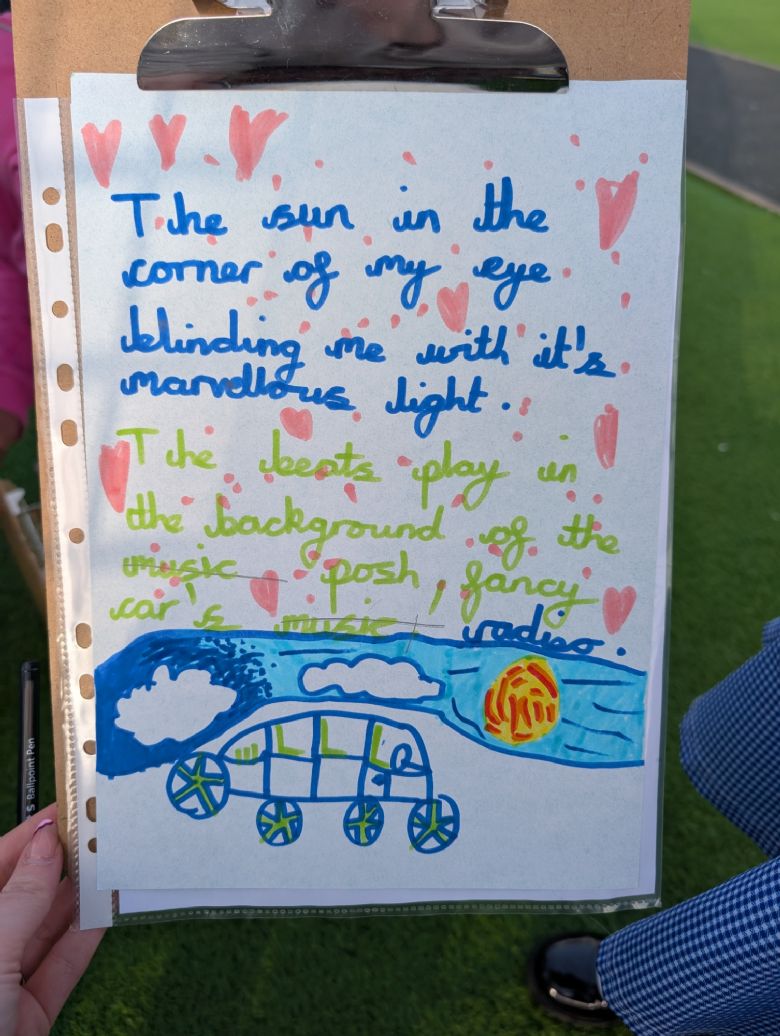 The sun in the
corner of my eye
blinding me with it's
marvellous light.
The beats play in
the background of the
music posh, fancy
car's music, radio.
S Ballpoint Pen